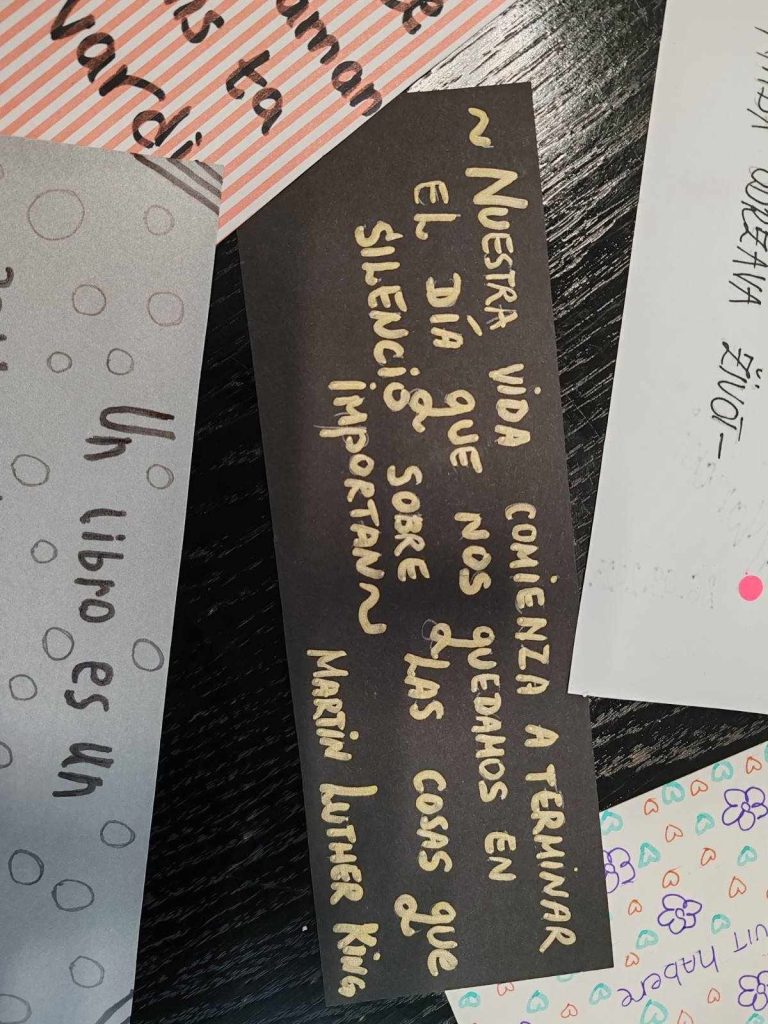 ~ NUESTRA VIDA COMIENZA A TERMINAR
EL DÍA QUE NOS QUEDAMOS EN
SILENCIO SOBRE LAS COSAS QUE
IMPORTAN ~
MARTIN LUTHER KING
Un libro es un
ta
aman
vardi
ŽIVOT-
habere